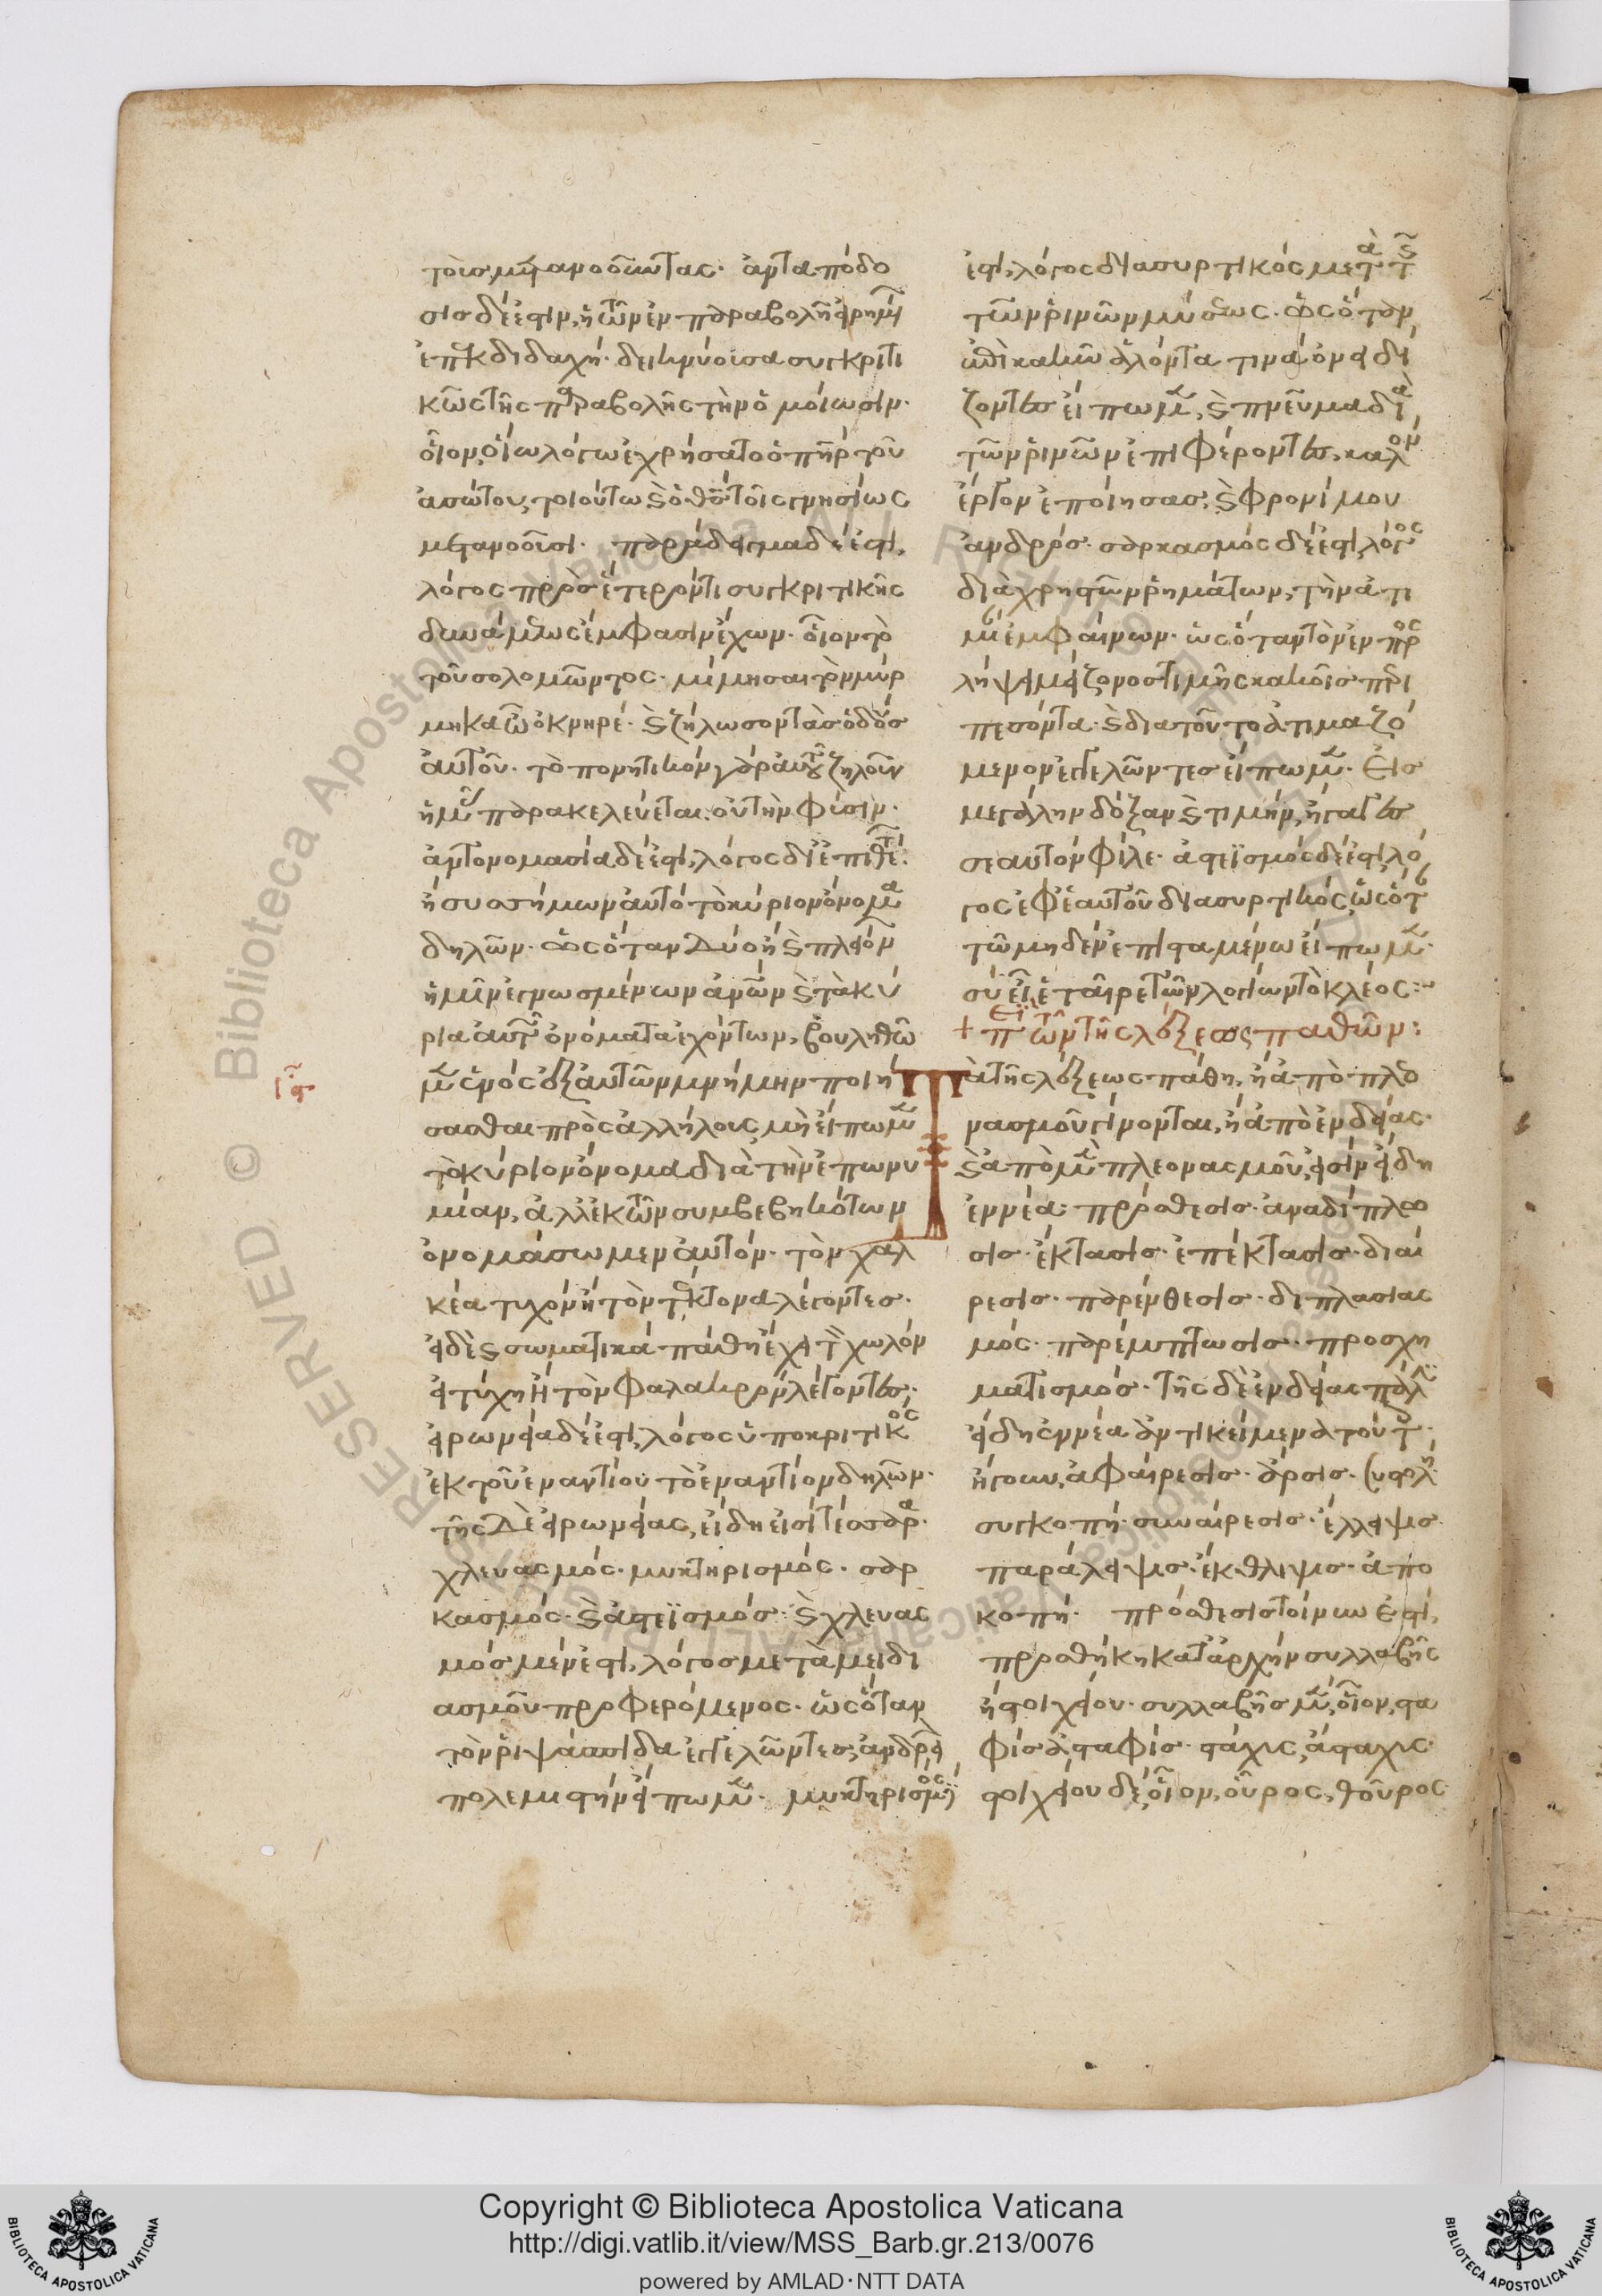 τοὺς μετανοοῦντας· ἀνταπόδο
σις δέ ἐστιν, ἡ τῶν ἐν παραβολῇ εἰρημέν
διδαχή· δεικνύουσα συγκριτι
κῶς τῆς παραβολῆς τὴν ὁμοίωσιν·
οἷον, οἵω λόγω ἐχρήσατο ὁ πηρ τοῦ
ἀσώτου, τοιούτω καὶ ὁ θς τοῖς γνησίως
μετανοοῦσι· παράδειγμα δέ ἐστι,
λόγος πρὸς ἕτερόν τι συγκριτικῆς
δυνάμεως ἔμφασιν ἔχων· οἷον τὸ
τοῦ σολομῶντος· μίμησαι τὸν μύρ
μηκα ὦ ὀκνηρέ· καὶ ζήλωσον τὰς ὁδοὺς
αὐτοῦ· τὸ πονητικὸν γὰρ αὐτοῦ ζηλοῦν
ἡμῖν παρακελεύεται, οὐ τὴν φύσιν·
ἀντονομασία δέ ἐστι, λόγος δι' ἐπιθέτ
ἢ συσσήμων αὐτὸ τὸ κύριον ὄνομα
δηλῶν· ὡς ὅταν δύο ἢ καὶ πλειόν
ἡμῖν ἐγνωσμένων ἀνων καὶ τὰ κύ
ρια αὐτῶν ὀνόματα ἐχόντων, βουληθῶ
μεν ἑνὸς ἐξ αὐτῶν μνήμην ποιή
σασθαι πρὸς ἀλλήλους, μὴ εἴπωμεν
τὸ κύριον ὄνομα διὰ τὴν ἐπωνυ
μίαν, ἀλλ' ἐκ τῶν συμβεβηκότων
ὀνομάσωμεν αὐτόν· τὸν χαλ
κέα τυχὸν ἢ τὸν τέκτονα λέγοντες·
εἰ δὲ καὶ σωματικὰ πάθη ἔχει τὸν χωλὸν
εἰ τύχη ἢ τὸν φαλακρὸν λέγοντες·
εἰρωνεία δέ ἐστι, λόγος ὑποκριτικὸς
ἐκ τοῦ ἐναντίου τὸ ἐναντίον δηλῶν·
τῆς δὲ εἰρωνείας, εἴδη εἰσὶ τέσσαρα·
χλευασμός· μυκτηρισμός· σαρ
κασμός· καὶ ἀστεϊσμός· καὶ χλευας
μὸς μέν ἐστι, λόγος μετὰ μειδι
ασμοῦ προφερόμενος· ὡς ὅταν
τὸν ῥιψάσπιδα ἐγγελῶντες, ἀνδρεῖ
πολεμιστὴν εἴπωμεν· μυκτηρισμός
ἐστι, λόγος διασυρτικὸς μετὰ τῆς
τῶν ῥινῶν μύσεως· ὡς ὅταν
κακῶ ἁλόντα τινὰ ὀνειδί
ζοντες εἴπωμεν, καὶ πνεῦμα διὰ
τῶν ῥινῶν ἐπιφέροντες, καλὸν
ἔργον ἐποίησας, καὶ φρονίμου
ἀνδρός· σαρκασμὸς δέ ἐστι, λόγος
διὰ χρηστῶν ῥημάτων, τὴν ἀτι
μίαν ἐμφαίνων· ὡς ὅταν τὸν ἐν προς
λήψει μείζονος τιμῆς κακοῖς περι
πεσόντα· καὶ διὰ τοῦτο ἀτιμαζό
μενον ἐγγελῶντες εἴπωμεν· Εἰς
μεγάλην δόξαν καὶ τιμὴν, ἤγαγες
σεαυτὸν φίλε· ἀστεϊσμὸς δέ ἐστι, λό
γος ἐφ' ἑαυτοῦ διασυρτικός, ὡς ὅταν
τῶ μηδὲν ἐπισταμένω εἴπωμεν·
σὺ εἶ ἑταῖρε τῶν λογίων τὸ κλέος:
+ Ἔτι π τῶν τῆς λέξεως παθῶν:
Τὰ τῆς λέξεως πάθη, ἢ ἀπὸ πλεο
νασμοῦ γίνονται, ἢ ἀπὸ ἐνδείας·
καὶ ἀπὸ μὲν πλεονασμοῦ, εἰσὶν εἴδη
ἐννέα· πρόσθεσις· ἀναδίπλω
σις· ἔκτασις· ἐπέκτασις· διαί
ρεσις· παρένθεσις· διπλασιας
μός· παρέμπτωσις· προσχη
ματισμός· τῆς δὲ ἐνδείας πάλιν
εἴδη ἐννέα ἀντικείμενα τούτοις·
ἤγουν, ἀφαίρεσις· ἄρσις· συστολή·
συγκοπή· συναίρεσις· ἔλλειψις·
παράλειψις· ἔκθλιψις· ἀπο
κοπή· πρόσθεσις τοίνυν ἐστί,
προσθήκη κατ' ἀρχὴν συλλαβῆς
ἢ στοιχείου· συλλαβῆς μὲν, οἷον, στα
φίς ἀσταφίς· στάχις, ἄσταχις·
στοιχείου δέ, οἷον, οὖρος, θοῦρος
Copyright © Biblioteca Apostolica Vaticana
http://digi.vatlib.it/view/MSS_Barb.gr.213/0076
powered by AMLAD·NTT DATA
BIBLIOTECA APOSTOLICA VATICANA
BIBLIOTECA APOSTOLICA VATICANA